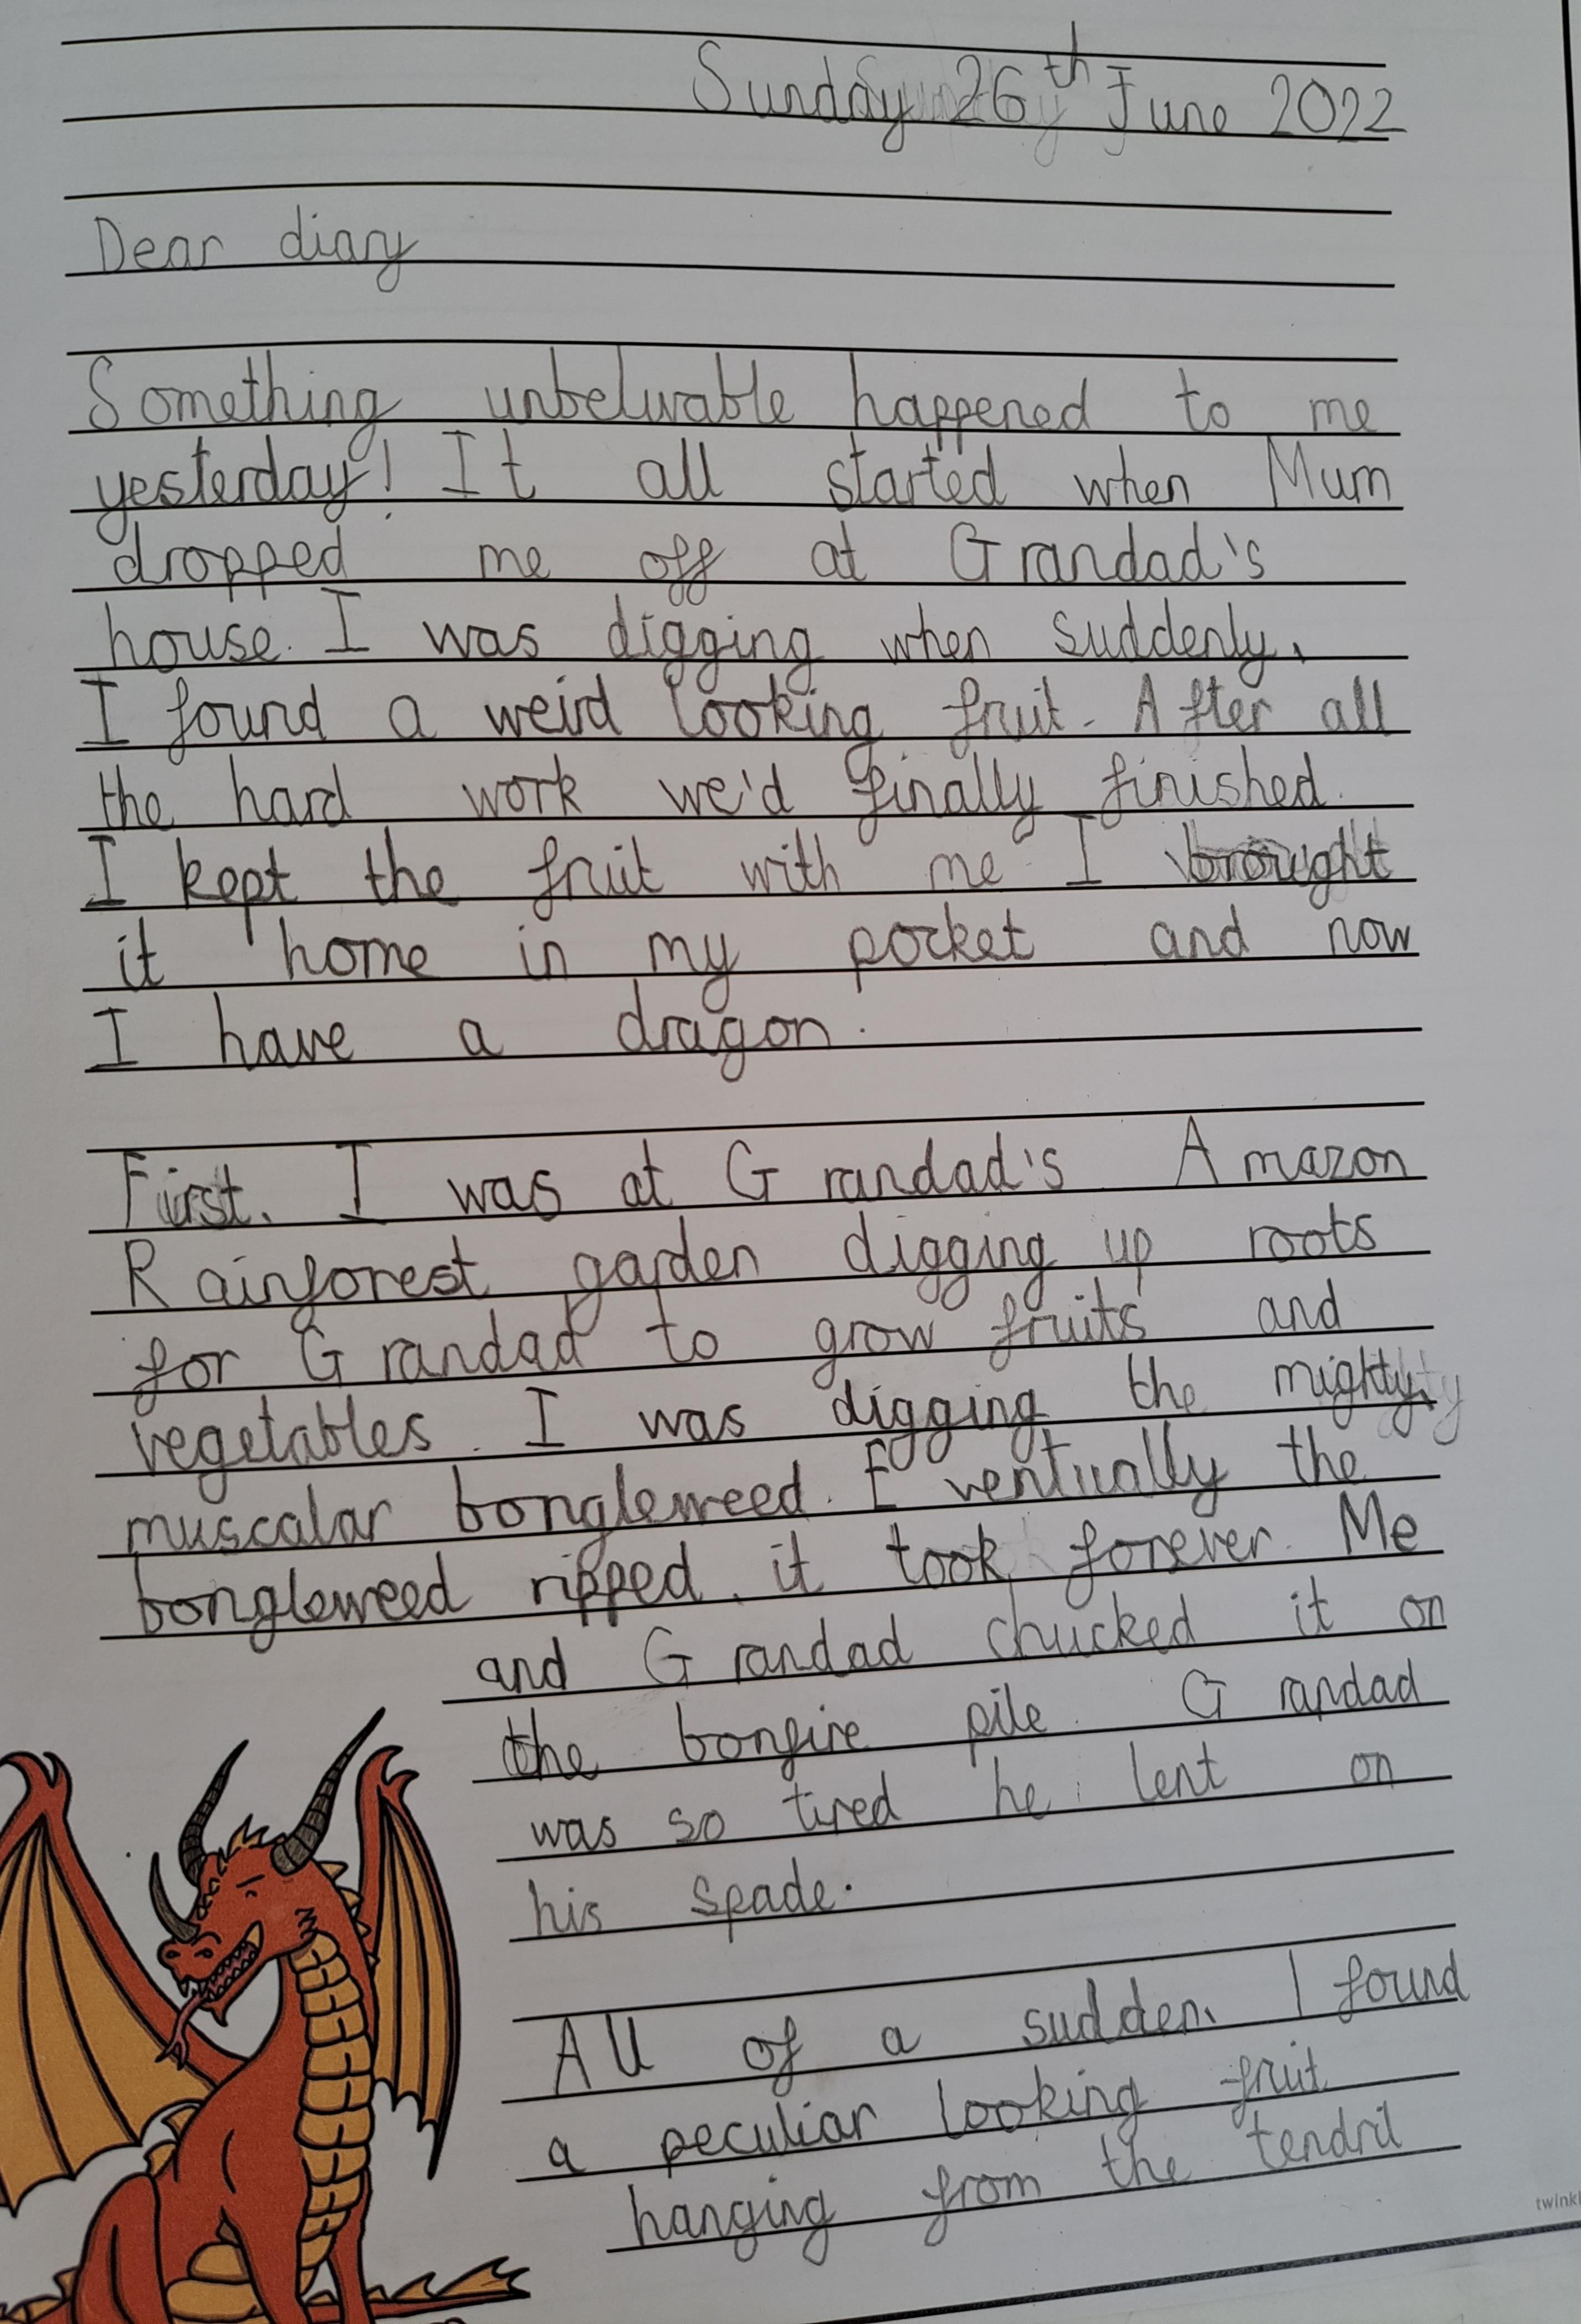 Sunday 26th June 2022
Dear diary
Something unbelivable happened to me
yesterday! It all started when Mum
dropped me off at Grandad's
house. I was digging when suddenly,
I found a weird looking fruit. After all
the hard work we'd finally finished.
I kept the fruit with me. I brought
it home in my pocket and now
I have a dragon.
First, I was at Grandad's Amazon
Rainforest garden digging up roots
for Grandad to grow fruits and
vegetables. I was digging the mighty,
muscalar bongleweed. Eventually the
bongleweed ripped, it took forever. Me
and Grandad chucked it on
the bonfire pile. Grandad
was so tired he lent on
his spade.
All of a sudden, I found
a peculiar looking fruit
hanging from the tendril